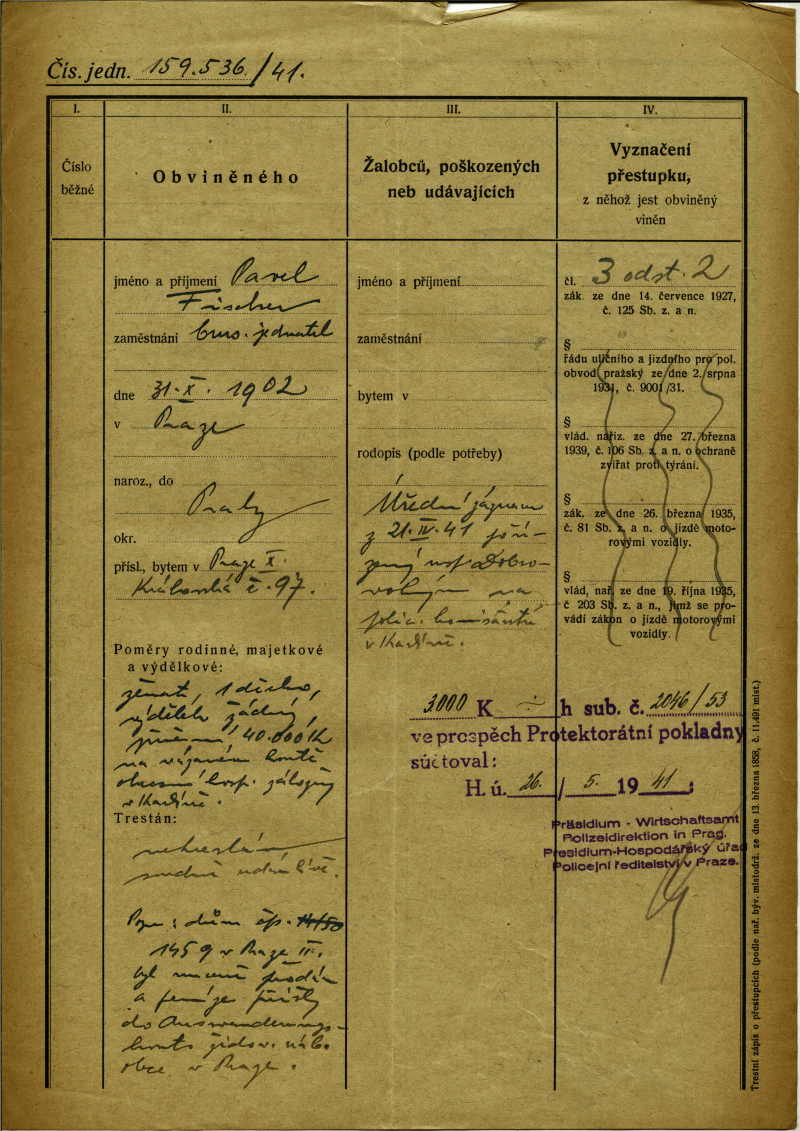 Čís. jedn. 159.536/41.
I.
Číslo
běžné
II.
Obviněného
III.
Žalobců, poškozených
neb udávajících
IV.
Vyznačení
přestupku,
z něhož jest obviněný
viněn
jméno a příjmení Pavel
Fischer
zaměstnání jednatel
dne 31.X. 1902
v Praze
naroz., do
Prahy
okr.
přísl., bytem v Praze X.
Královská č. 97.
Poměry rodinné, majetkové
a výdělkové:
ženat, 1 dítě
výdělek žádný,
jmění 40.000 K
na vázaném kontě
obecní hosp. záložny
v Karlíně.
Trestán:
netrestán
Pozn: dům čp. 14/50
1459 v Praze II.
byl nuceně prodán
a peníze přišly
do Auswanderungs-
konto židov. náb.
obce v Praze.
jméno a příjmení
zaměstnání
bytem v
rodopis (podle potřeby)
Úřední záznam
z 21.IV.41 poří-
zený insp. Dobro-
volným na
polic. komisařství
v Karlíně.
čl. 3 odst. 2
zák. ze dne 14. července 1927,
č. 125 Sb. z. a n.
§
řádu uličního a jízdního pro pol.
obvod pražský ze dne 2. srpna
1931, č. 9001/31.
§
vlád. naříz. ze dne 27. března
1939, č. 106 Sb. z. a n. o ochraně
zvířat proti týrání.
§
zák. ze dne 26. března 1935,
č. 81 Sb. z. a n. o jízdě moto-
rovými vozidly.
§
vlád, nař. ze dne 19. října 1935,
č 203 Sb. z. a n., jímž se pro-
vádí zákon o jízdě motorovými
vozidly.
3000 K h sub. č. 2046/53
ve prospěch Protektorátní pokladny
súčtoval:
H. ú. 26. / 5. 1941 :
Präsidium - Wirtschaftsamt
Polizeidirektion in Prag.
Presidium-Hospodářský úřad
Policejní ředitelství v Praze.
Trestní zápis o přestupcích (podle nař. býv. místodrž. ze dne 13. března 1858, č. 11.491 míst.)